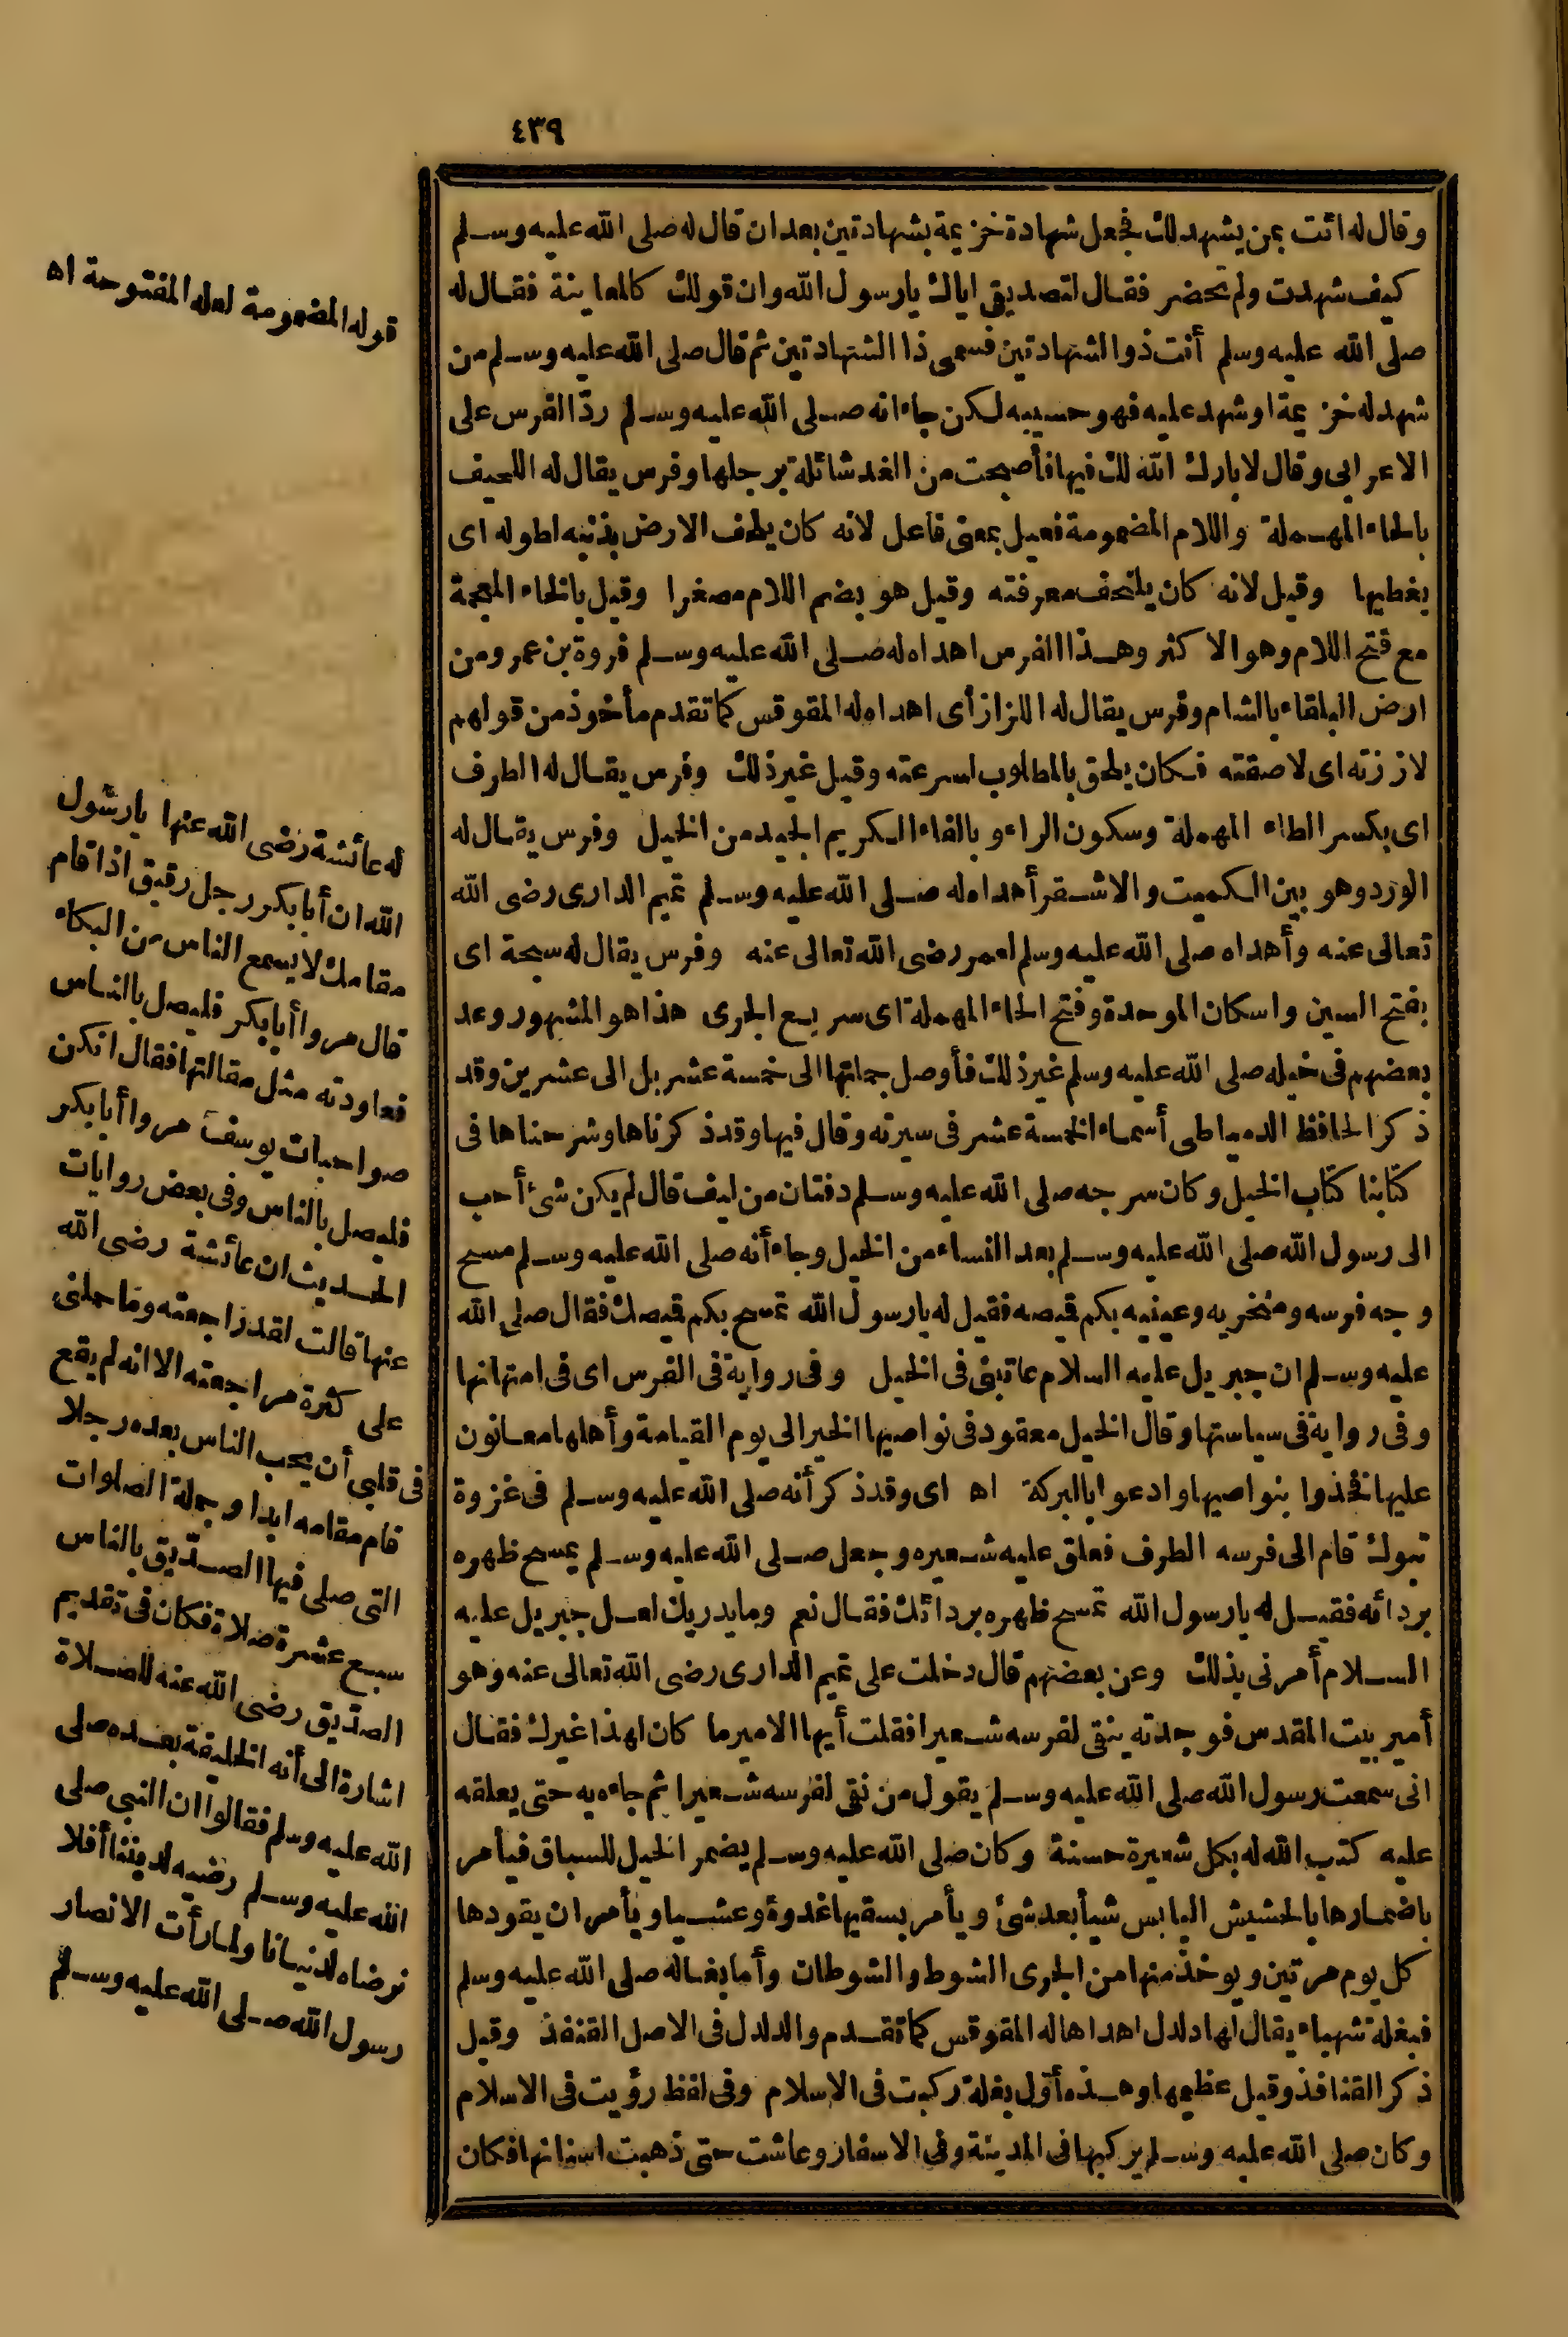 ٤٣٩
وقال له ائت بمن يشهد لك فجعل شهادة خزيمة بشهادتين بعد ان قال له صلى الله عليه وسلم
كيف شهدت ولم تحضر فقال لتصديقى اياك يارسول الله وان قولك كالمعاينة فقال له
صلى الله عليه وسلم أنت ذوالشهادتين فسمى ذا الشهادتين ثم قال صلى الله عليه وسلم من
شهد له خزيمة اوشهد عليه فهو حسيبه لكن جاء انه صلى الله عليه وسلم ردّ الفرس على
الاعرابى وقال لا بارك الله لك فيها فأصبحت من الغد شائلة برجلها وفرس يقال له اللحيف
بالحاء المهملة واللام المضمومة فعيل بمعنى فاعل لانه كان يلحف الارض بذنبه لطوله اى
يغطيها وقيل لانه كان يلتحف معرفته وقيل هو بضم اللام مصغرا وقيل بالخاء المعجمة
مع فتح اللام وهو الاكثر وهذا الفرس اهداه له صلى الله عليه وسلم فروة بن عمرو من
ارض البلقاء بالشام وفرس يقال له اللزاز أى اهداه له المقوقس كما تقدم مأخوذ من قولهم
لاززته اى لاصقته فكان يلحق بالمطلوب لسرعته وقيل غير ذلك وفرس يقال له الطرف
اى بكسر الطاء المهملة وسكون الراء وبالفاء الكريم الجيد من الخيل وفرس يقال له
الورد وهو بين الكميت والاشقر أهداه له صلى الله عليه وسلم تميم الدارى رضى الله
تعالى عنه وأهداه صلى الله عليه وسلم لعمر رضى الله تعالى عنه وفرس يقال له سبحة اى
بفتح السين واسكان الموحدة وفتح الحاء المهملة اى سريع الجرى هذا هو المشهور وعد
بعضهم فى خيله صلى الله عليه وسلم غير ذلك فأوصل جملتها الى خمسة عشر بل الى عشرين وقد
ذكر الحافظ الدمياطى أسماء الخمسة عشر فى سيرته وقال فيها وقد ذكرناها وشرحناها فى
كتابنا كتاب الخيل وكان سرجه صلى الله عليه وسلم دفتان من ليف قال لم يكن شئ أحب
الى رسول الله صلى الله عليه وسلم بعد النساء من الخيل وجاء أنه صلى الله عليه وسلم مسح
وجه فرسه ومنخريه وعينيه بكم قميصه فقيل له يارسول الله تمسح بكم قميصك فقال صلى الله
عليه وسلم ان جبريل عليه السلام عاتبنى فى الخيل وفى رواية فى الفرس اى فى امتهانها
وفى رواية فى سياستها وقال الخيل معقود فى نواصيها الخير الى يوم القيامة وأهلها معانون
عليها فخذوا بنواصيها وادعوا بالبركة اه اى وقد ذكر أنه صلى الله عليه وسلم فى غزوة
تبوك قام الى فرسه الطرف فعلق عليه شعيره وجعل صلى الله عليه وسلم يمسح ظهره
بردائه فقيل له يارسول الله تمسح ظهره بردائك فقال نعم وما يدريك لعل جبريل عليه
السلام أمرنى بذلك وعن بعضهم قال دخلت على تميم الدارى رضى الله تعالى عنه وهو
أمير بيت المقدس فوجدته ينقى لفرسه شعيرا فقلت أيها الامير ما كان لهذا غيرك فقال
انى سمعت رسول الله صلى الله عليه وسلم يقول من نقى لفرسه شعيرا ثم جاءه به حتى يعلقه
عليه كتب الله له بكل شعيرة حسنة وكان صلى الله عليه وسلم يضمر الخيل للسباق فيأمر
باضمارها بالحشيش اليابس شيأ بعد شئ ويأمر بسقيها غدوة وعشيا ويأمر ان يقودها
كل يوم مرتين ويوخذ منها من الجرى الشوط والشوطان وأما بغاله صلى الله عليه وسلم
فبغلة شهباء يقال لها دلدل اهداها له المقوقس كما تقدم والدلدل فى الاصل القنفذ وقيل
ذكر القنافذ وقيل عظيمها وهذه أوّل بغلة ركبت فى الاسلام وفى لفظ رؤيت فى الاسلام
وكان صلى الله عليه وسلم يركبها فى المدينة وفى الاسفار وعاشت حتى ذهبت اسنانها فكان
قوله المضمومة لعله المفتوحة اه
له عائشة رضى الله عنها يارسول
الله ان أبابكر رجل رقيق اذا قام
مقامك لا يسمع الناس من البكاء
قال مروا أبابكر فليصل بالناس
فعاودته مثل مقالتها فقال انكن
صواحبات يوسف مروا أبابكر
فليصل بالناس وفى بعض روايات
الحديث ان عائشة رضى الله
عنها قالت لقد راجعته وما حملنى
على كثرة مراجعته الا انه لم يقع
فى قلبى أن يحب الناس بعده رجلا
قام مقامه ابدا وجملة الصلوات
التى صلى فيها الصدّيق بالناس
سبع عشرة صلاة فكان فى تقديم
الصدّيق رضى الله عنه للصلاة
اشارة الى أنه الخليفة بعده صلى
الله عليه وسلم فقالوا ان النبى صلى
الله عليه وسلم رضيه لديننا أفلا
نرضاه لدنيانا ولما رأت الانصار
رسول الله صلى الله عليه وسلم